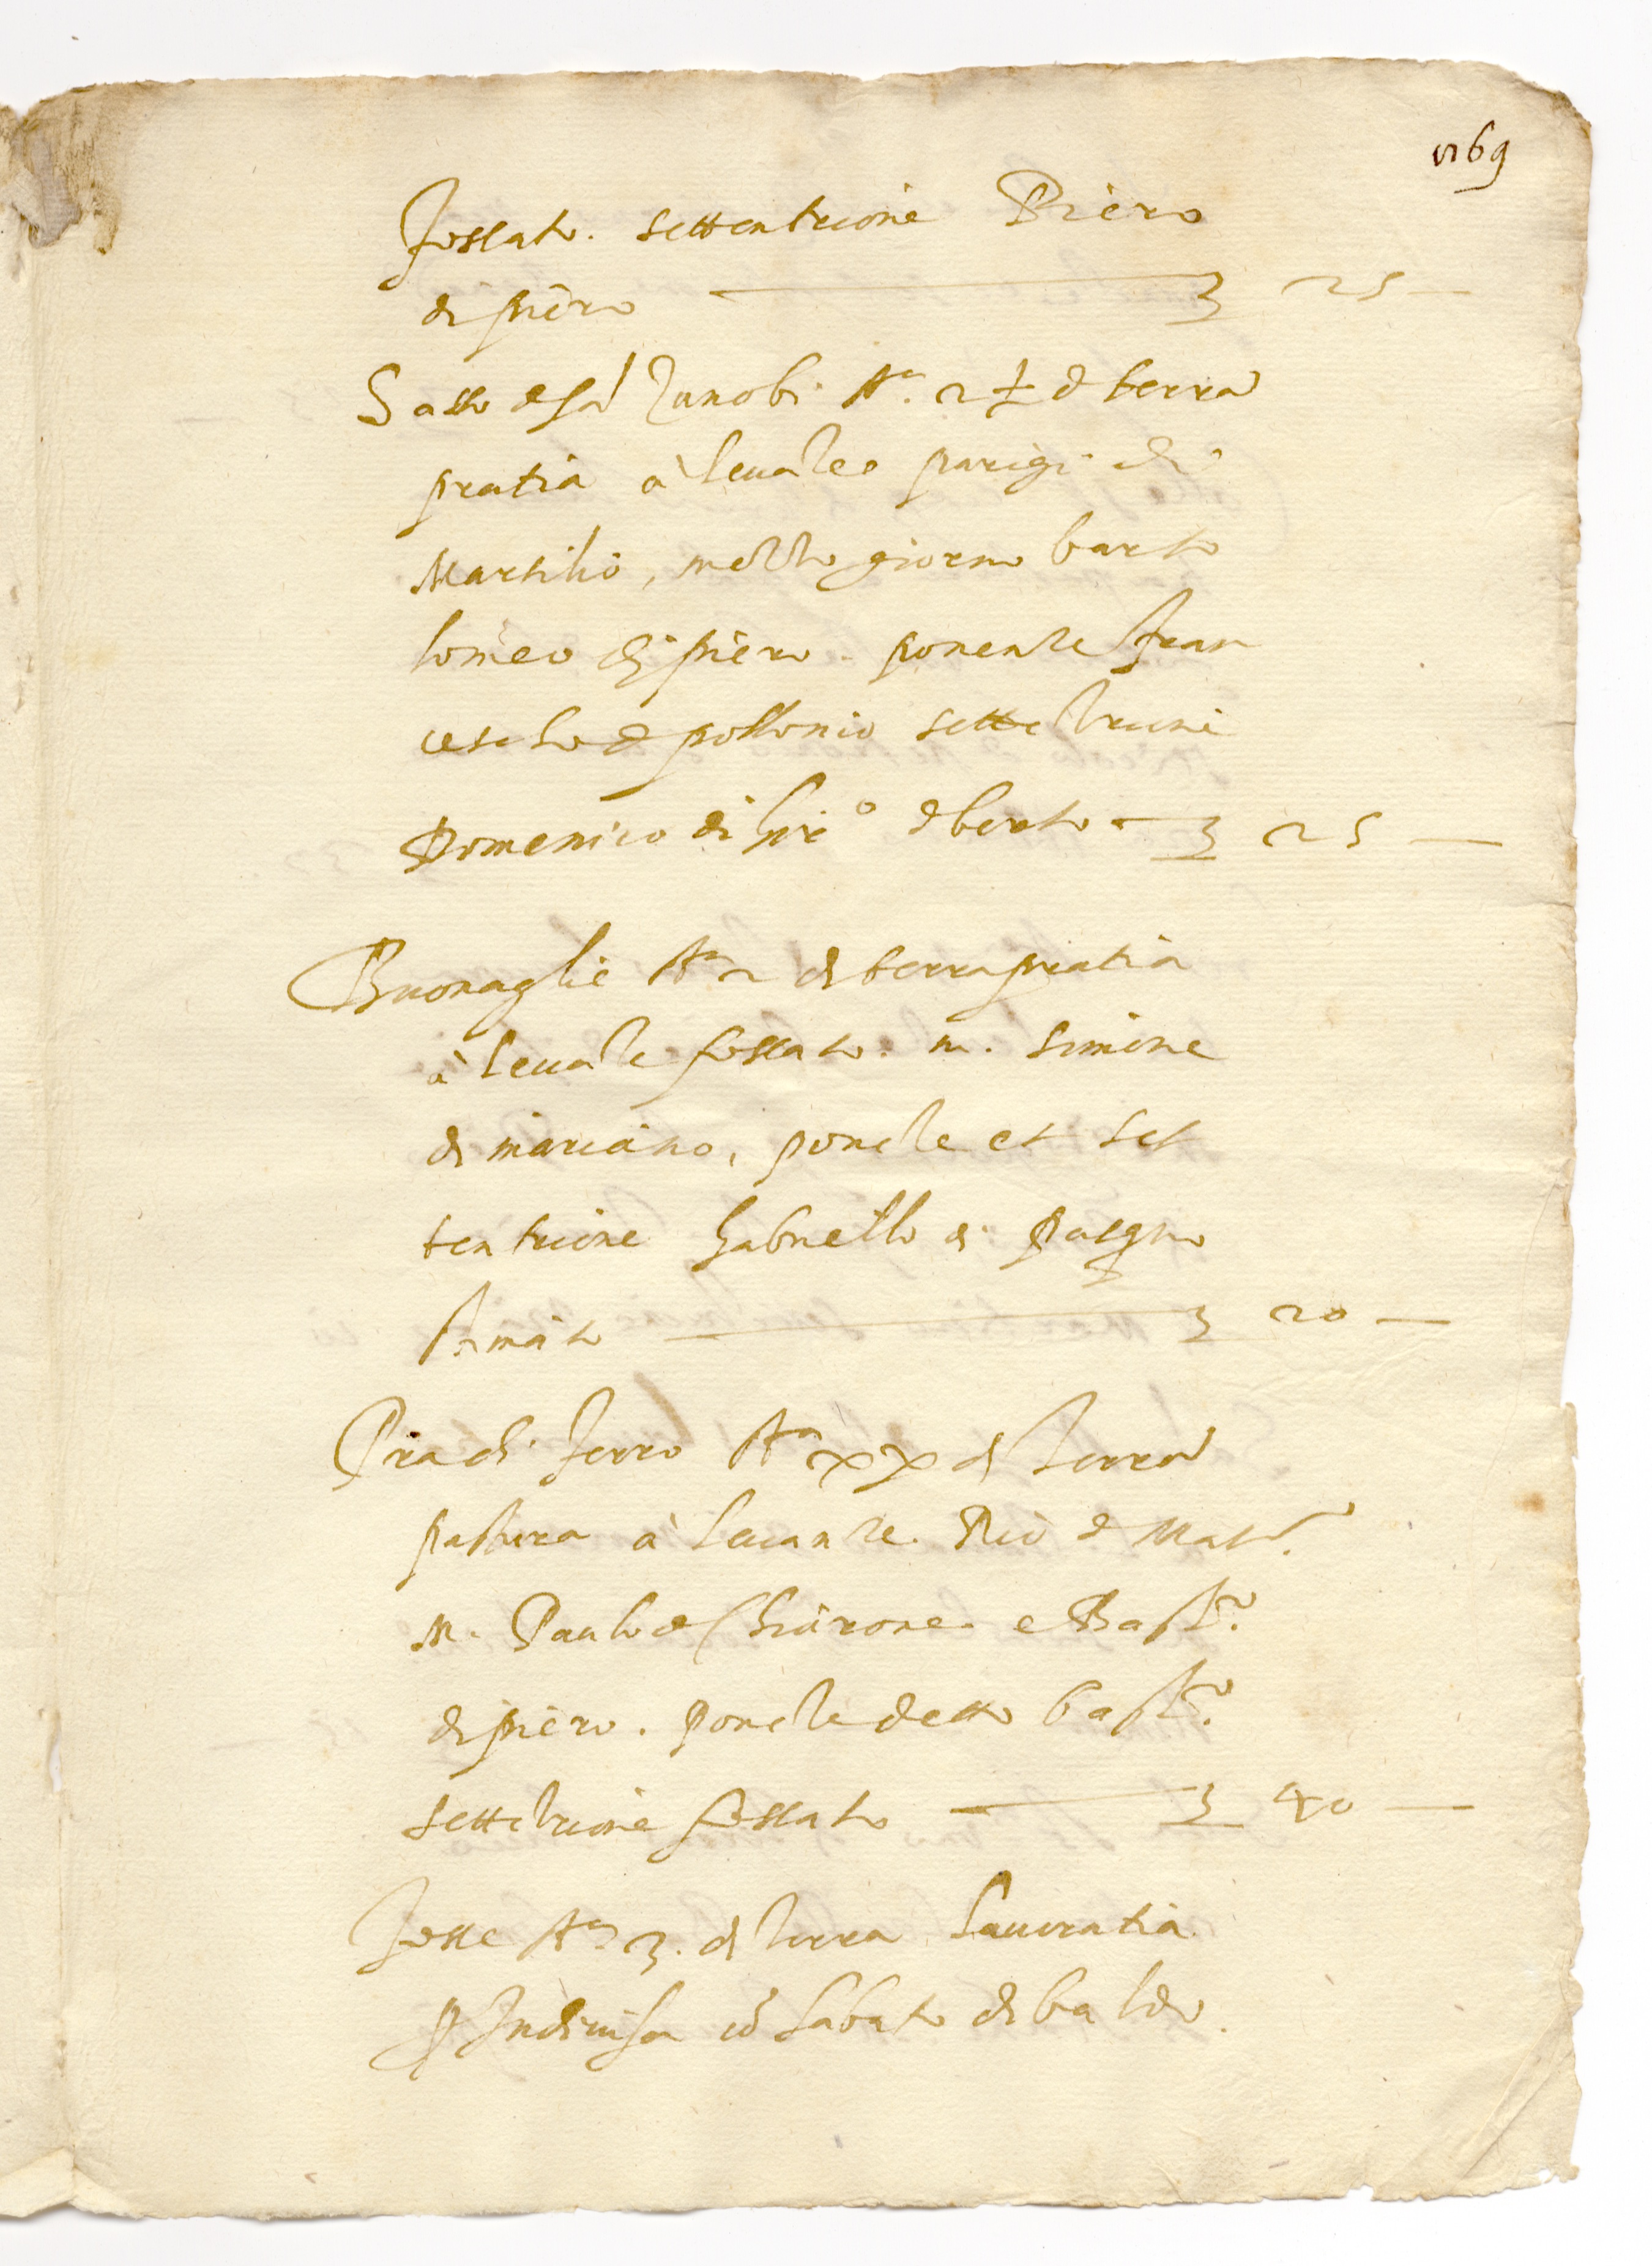 169
fossato. settentrione Piero
di piero 25
Sasso di sa Zanobi st.a 2 ½ di terra
pratia à leuate parigi di
Marsilio, mezzo giorno barto
lomeo di piero. ponente fran
cescho di pollonio sette trione
Domenico di lor.o di berto 25
Buonaglie st.a 2 di terra pratia
à leuate fossato. m. simone
di mariano, ponete et set
tentrione Gabriello di
Amato 20
Pradi ferro st.a xx di terra
pastura à leuante. Rio di
M. Paulo di Chiarone. e Bast.o
di piero. ponete detto bast.o
settetrione fossato 40
fosse st.a 3. di terra lauoratia
p Indiuisa cō sabato di baldo.